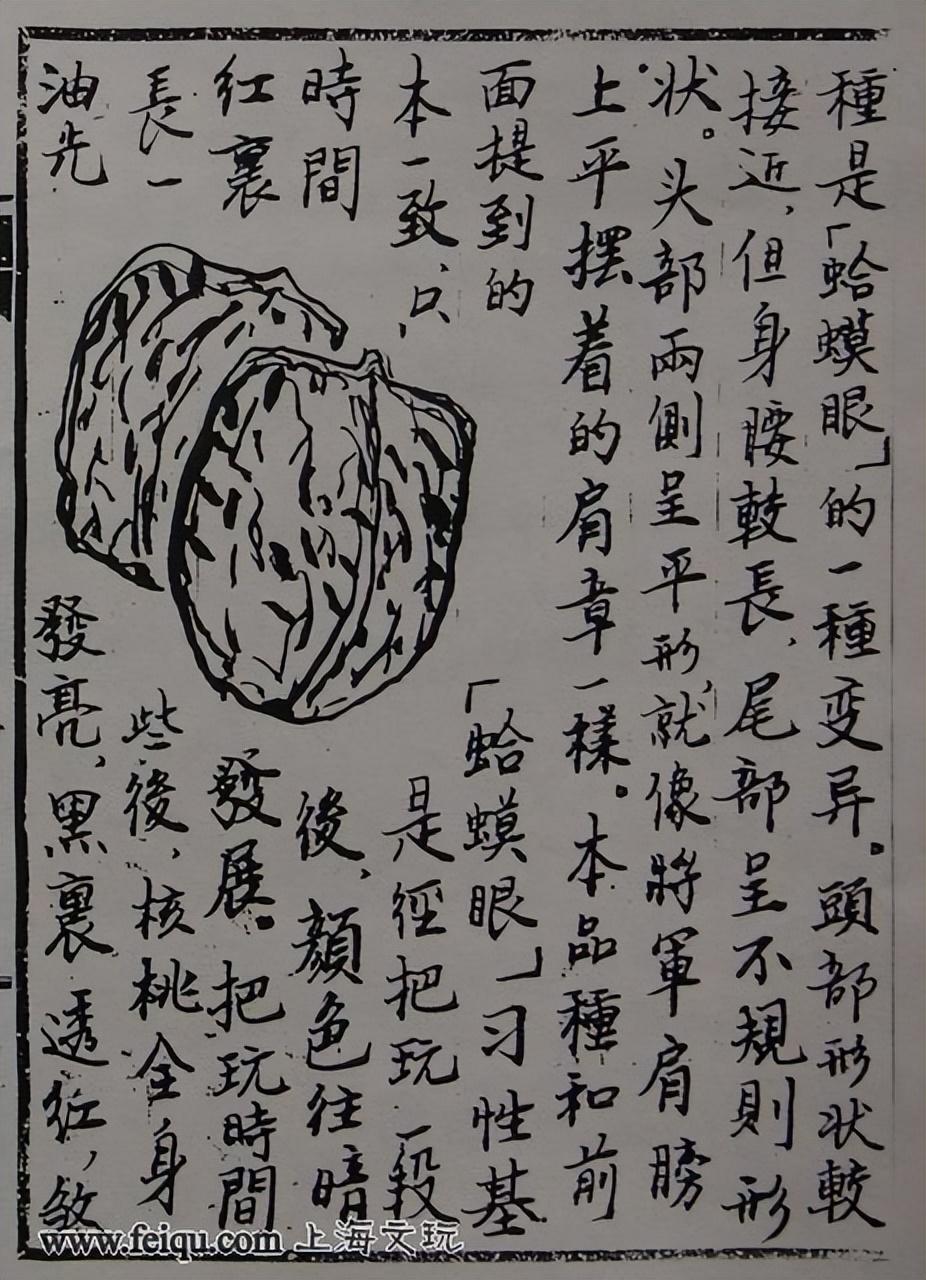 種是「蛤蟆眼」的一種变异。頭部形状較
接近，但身腰較長，尾部呈不規則形
状。头部兩側呈平形，就像將軍肩膀
上平摆着的肩章一樣。本品種和前
面提到的「蛤蟆眼」习性基
本一致，只是徑把玩一段
時間後，顏色往暗
红裏發展。把玩時間
長一些後，核桃全身
油光發亮，黑裏透红，敛
www.feiqu.com 上海文玩